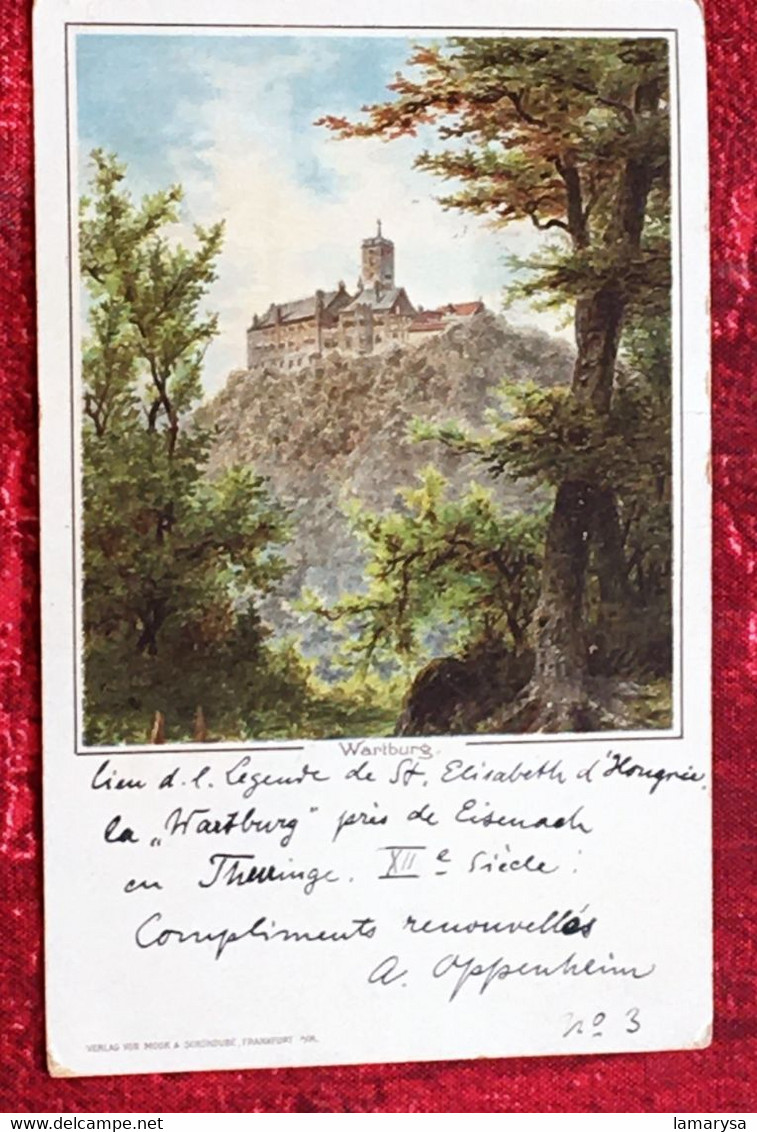 Wartburg.
lieu d. l. Legende de St. Elisabeth d'Hongrie.
la „Wartburg" près de Eisenach
en Thuringe. XII e Siècle.
Compliments renouvellés
A. Oppenheim
No 3
VERLAG VON MOOK & FRANKFURT A/M.
lamarysa